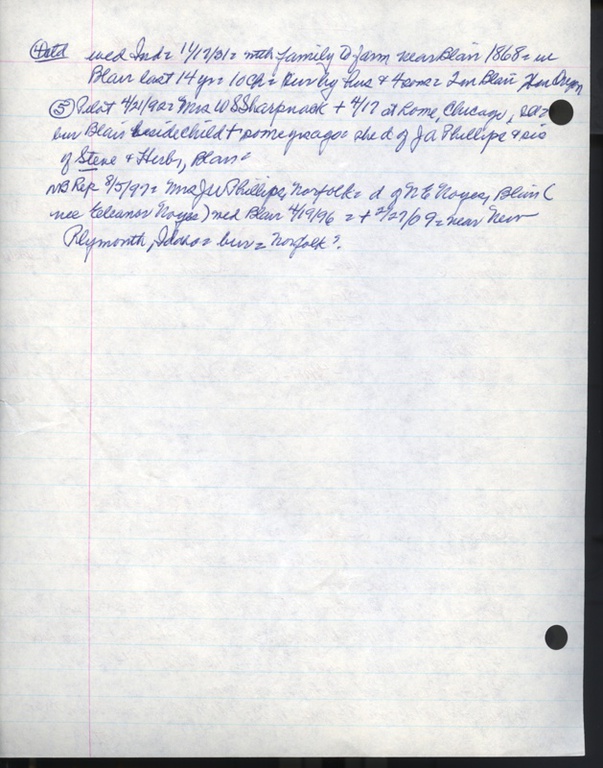 ④ctd med Ind = 11/17/51 = with family to farm near Blair 1868 = in
Blair last 14 yr = 10 ch = surv by hus & 4 sons = 2 in Blair
⑤ Pilot 4/21/92 = Mrs W S Sharpnack + 4/17 at home, Chicago,
bur Blair beside child + some yrs ago = she d of J A Phillips & sis
of Steve & Herb, Blair =
NB Rep 3/5/97 = Mrs J W Phillips, Norfolk = d of N E Noyes, Blair (
nee Eleanor Noyes) med Blair 4/19/96 = + 2/27/09 = near New
Plymouth, Idaho = bur = Norfolk?.